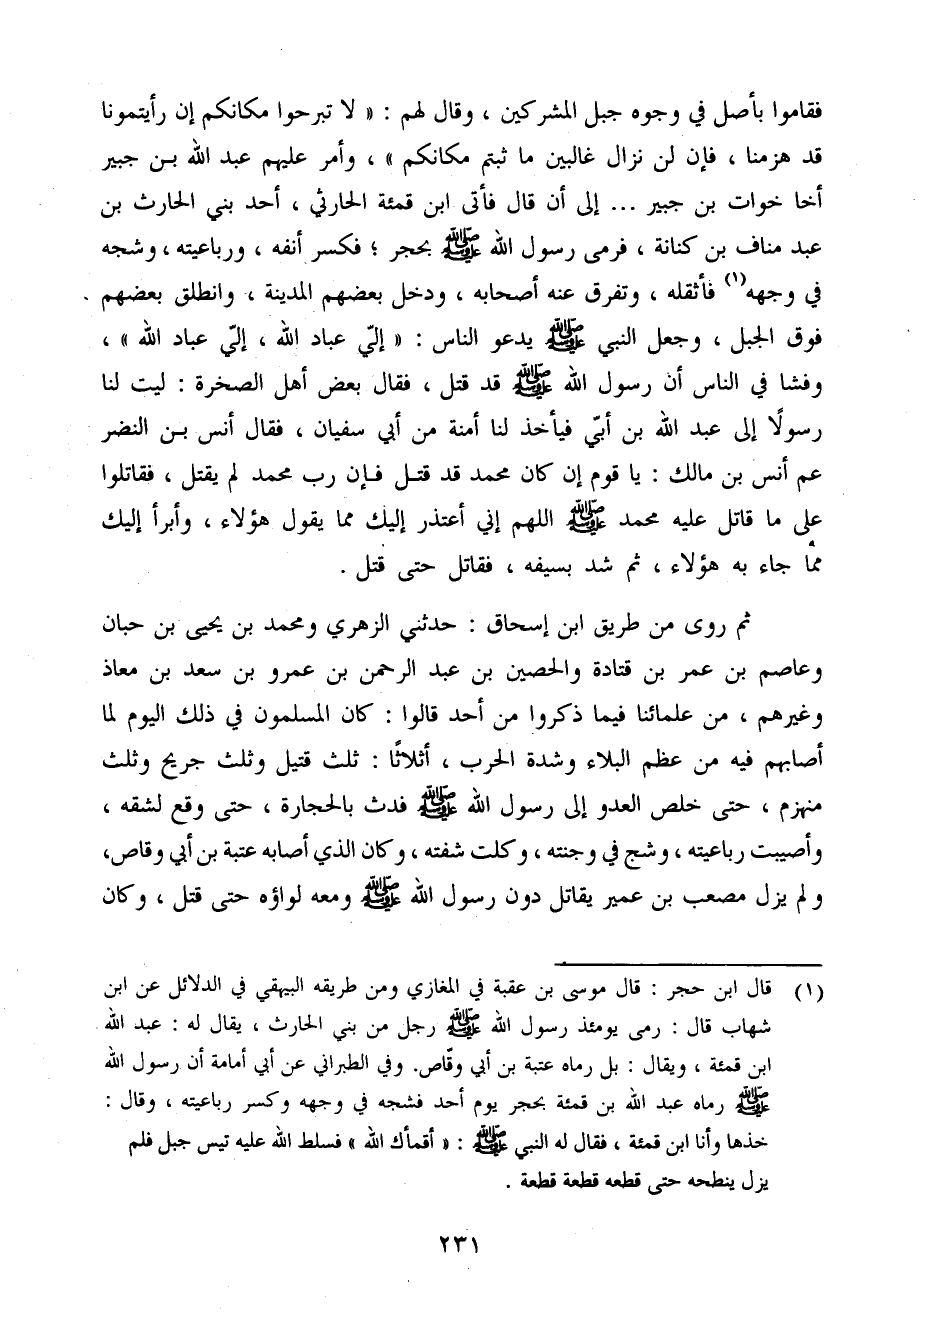 فقاموا بأصل في وجوه جبل المشركين ، وقال لهم : « لا تبرحوا مكانكم إن رأيتمونا
قد هزمنا ، فإن لن نزال غالبين ما ثبتم مكانكم » ، وأمر عليهم عبد الله بـن جبير
أخا خوات بن جبير ... إلى أن قال فأتى ابن قمئة الحارثي ، أحد بني الحارث بن
عبد مناف بن كنانة ، فرمى رسول الله ﷺ بحجر ؛ فكسر أنفه ، ورباعيته ، وشجه
في وجهه(١) فأثقله ، وتفرق عنه أصحابه ، ودخل بعضهم المدينة ، وانطلق بعضهم .
فوق الجبل ، وجعل النبي ﷺ يدعو الناس : « إليّ عباد الله ، إليّ عباد الله » ،
وفشا في الناس أن رسول الله ﷺ قد قتل ، فقال بعض أهل الصخرة : ليت لنا
رسولًا إلى عبد الله بن أبيّ فيأخذ لنا أمنة من أبي سفيان ، فقال أنس بـن النضر
عم أنس بن مالك : يا قوم إن كان محمد قد قتـل فـإن رب محمد لم يقتل ، فقاتلوا
على ما قاتل عليه محمد ﷺ اللهم إني أعتذر إليك مما يقول هؤلاء ، وأبرأ إليك
مما جاء به هؤلاء ، ثم شد بسيفه ، فقاتل حتى قتل .
ثم روى من طريق ابن إسحاق : حدثني الزهري ومحمد بن يحيى بن حبان
وعاصم بن عمر بن قتادة والحصين بن عبد الرحمن بن عمرو بن سعد بن معاذ
وغيرهم ، من علمائنا فيما ذكروا من أحد قالوا : كان المسلمون في ذلك اليوم لما
أصابهم فيه من عظم البلاء وشدة الحرب ، أثلاثًا : ثلث قتيل وثلث جريح وثلث
منهزم ، حتى خلص العدو إلى رسول الله ﷺ فدث بالحجارة ، حتى وقع لشقه ،
وأصيبت رباعيته ، وشج في وجنته ، وكلت شفته ، وكان الذي أصابه عتبة بن أبي وقاص،
ولم يزل مصعب بن عمير يقاتل دون رسول الله ﷺ ومعه لواؤه حتى قتل ، وكان
(١) قال ابن حجر : قال موسى بن عقبة في المغازي ومن طريقه البيهقي في الدلائل عن ابن
شهاب قال : رمى يومئذ رسول الله ﷺ رجل من بني الحارث ، يقال له : عبد الله
ابن قمئة ، ويقال : بل رماه عتبة بن أبي وقّاص. وفي الطبراني عن أبي أمامة أن رسول الله
ﷺ رماه عبد الله بن قمئة بحجر يوم أحد فشجه في وجهه وكسر رباعيته ، وقال :
خذها وأنا ابن قمئة ، فقال له النبي ﷺ : « أقمأك الله » فسلط الله عليه تيس جبل فلم
يزل ينطحه حتى قطعه قطعة قطعة .
٢٣١